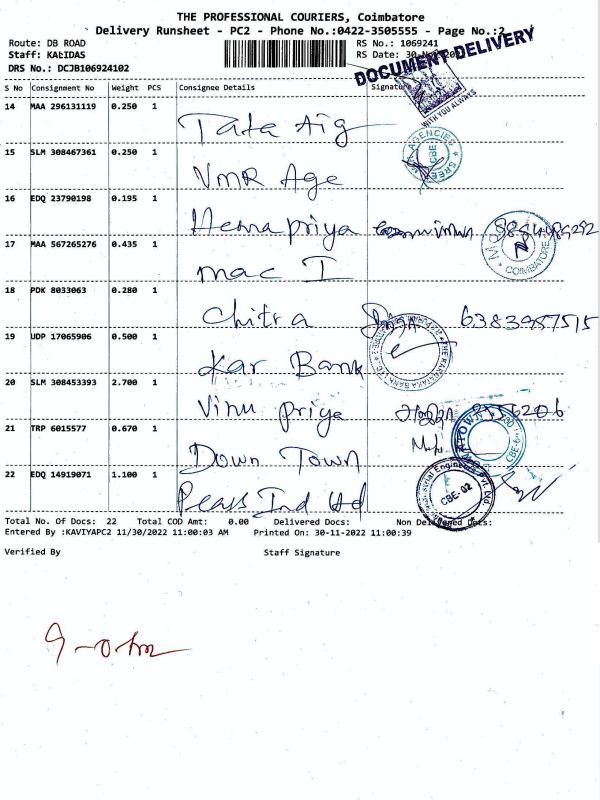 THE PROFESSIONAL COURIERS, Coimbatore
Delivery Runsheet - PC2 - Phone No.:0422-3505555 - Page No.:2
Route: DB ROAD
RS No.: 1069241
Staff: KALIDAS
RS Date: 30-Nov-2022
DRS No.: DCJB106924102
DOCUMENT DELIVERY
WITH YOU ALWAYS
S No Consignment No Weight PCS Consignee Details Signature
14 MAA 296131119 0.250 1
Tata Aig
AGENCIES
CBE
15 SLM 308467361 0.250 1
VMR Age
16 EDQ 23790198 0.195 1
Hemapriya
17 MAA 567265276 0.435 1
mac I
COIMBATORE
18 PDK 8033063 0.280 1
Chitra 6383987515
19 UDP 17065906 0.500 1
Kar Bank
THE KARNATAKA BANK LTD
20 SLM 308453393 2.700 1
Vinu priya
21 TRP 6015577 0.670 1
Down Town
22 EDQ 14919071 1.100 1
Pears Ind Ltd
CBE-02
Total No. Of Docs: 22 Total COD Amt: 0.00 Delivered Docs: Non Delivered Docs:
Entered By :KAVIYAPC2 11/30/2022 11:00:03 AM Printed On: 30-11-2022 11:00:39
Verified By Staff Signature